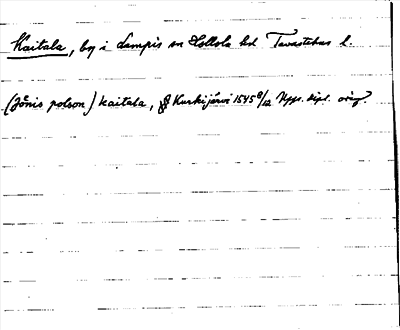 Kaitala, by i Lampis sn Hollola hd Tavastehus l.
(Jönis polson) kaitala, Kurkijärvi 1545 8/12 Upps. dipl. orig.